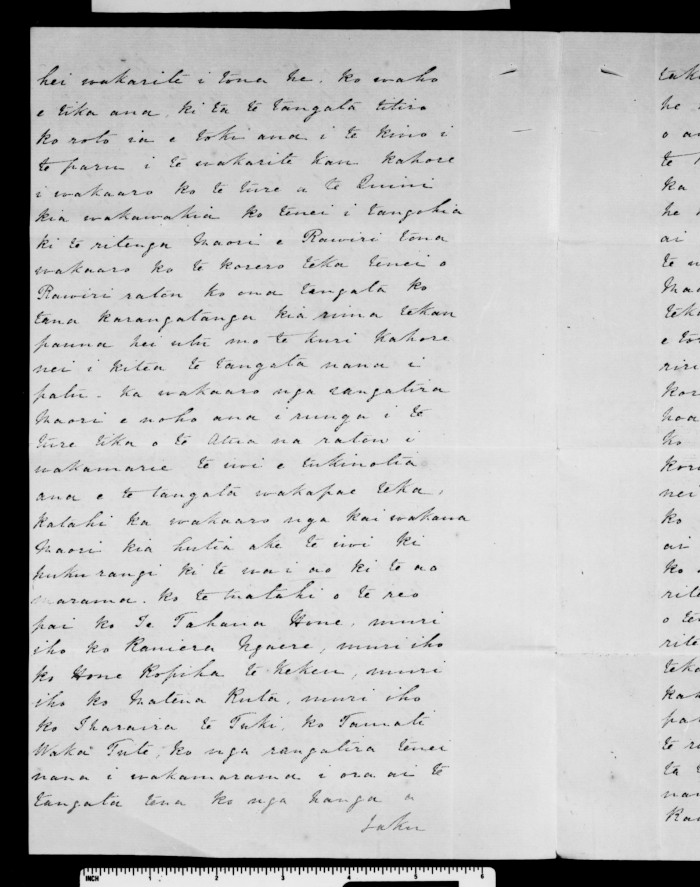 hei wakarite i tona he. ko waho
e tika ana ki ta te tangata titiro
ko roto ia e toku ana i te kino i
te paru i te wakarite kau kahore
i wakaaro ko te ture a te Quini
kia wakawakia ko tenei i tangohia
ki te ritenga Maori e Rawiri tona
wakaaro ko te korero teka tenei o
Rawiri raton ko ona tangata ko
tana karangatanga kia rima tekau
pauna hei utu mo te kuri kahore
nei i kitea te tangata nana i
patu. Ka wakaaro nga rangatira
Maori e noho ana i runga i te
ture tika o te Atua na raton i
wakamarie te iwi e tukinotia
ana e te tangata wakapae teka,
katahi ka wakaaro nga kai wakawa
Maori kia hutia ake te iwi ki
runga ki te wai ao ki te ao
marama. ko te tuatahi o te reo
pai ko Te Tahana Hone, muri
iho ko Raniera Ngaere, muri iho
ko Hone Ropiha te Kekeu, muri
iho ko Matena Ruta, muri iho
ko Iharaira te Tuki, ko Tamati
Waka Tute, ko nga rangatira tenei
nana i wakamarama i ora ai te
tangata tena ko nga hanga a
taku
he
o
te
Ka
he
ai
te
e
nei
ko
ai
ko
te
ta
INCH 1 2 3 4 5 6